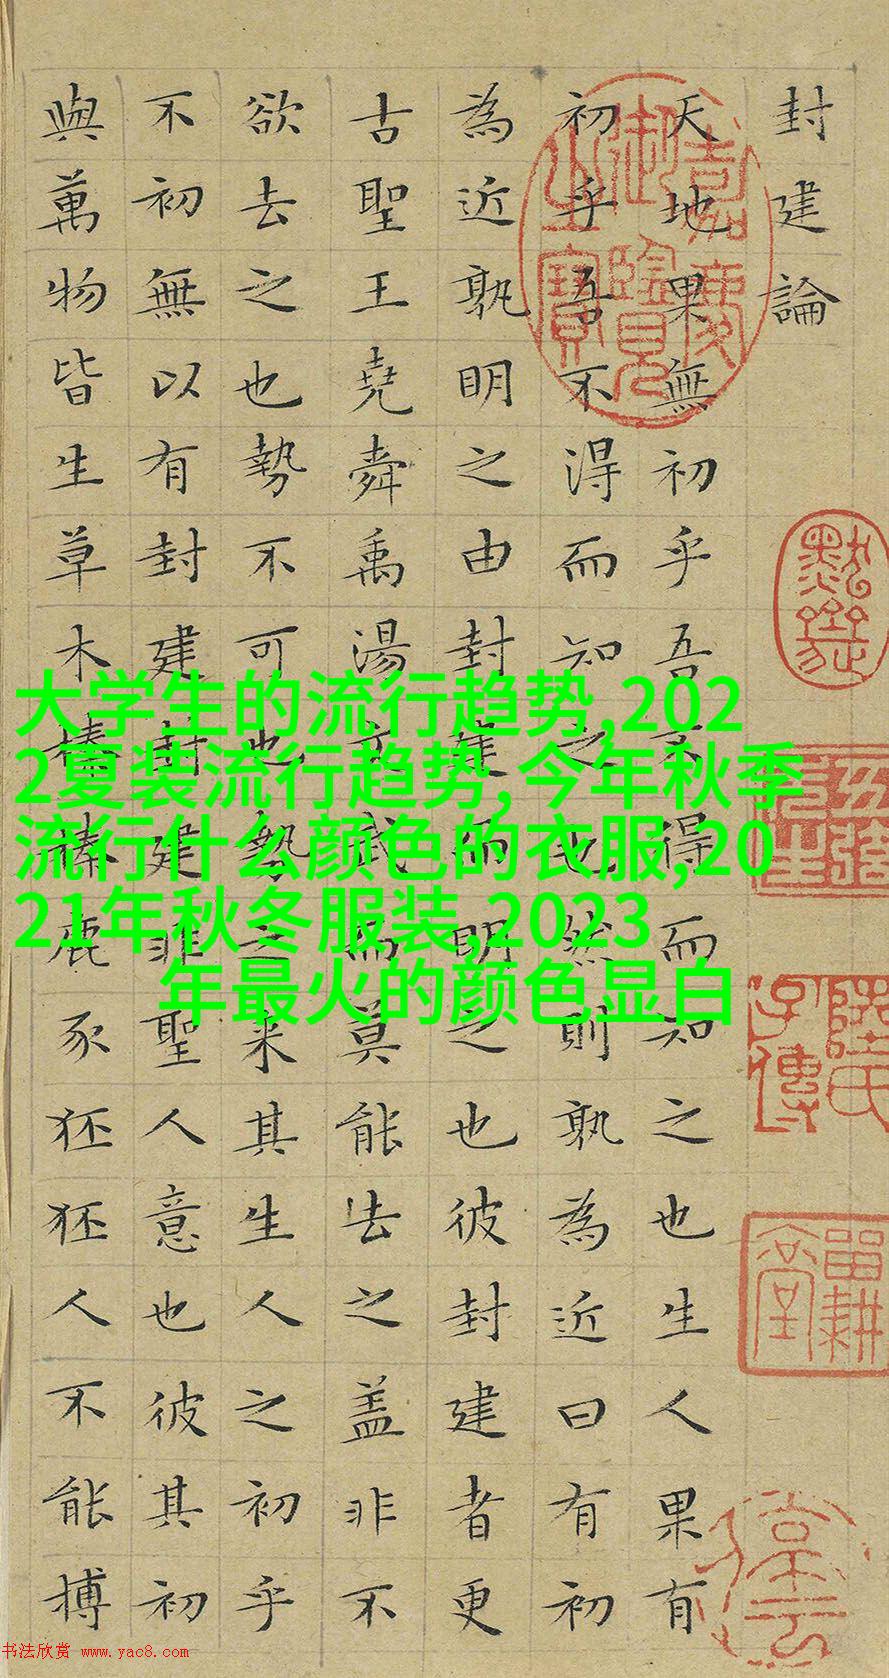 封建論
天地果無初乎吾不得而知之也生人果有
初乎吾不得而知之也然則孰為近曰有初
為近孰明之由封建而明之也彼封建者更
古聖王堯舜禹湯文武而莫能去之盖非不
欲去之也勢不可也勢之来其生人之初乎
不初無以有封建封建非聖人意也彼其初
與萬物皆生草木榛榛鹿豕狉狉人不能搏
嘉慶御覽之寶
大学生的流行趋势,202
2夏装流行趋势,今年秋季
流行什么颜色的衣服,20
21年秋冬服装,2023
年最火的颜色显白
书法欣赏 www.yac8.com